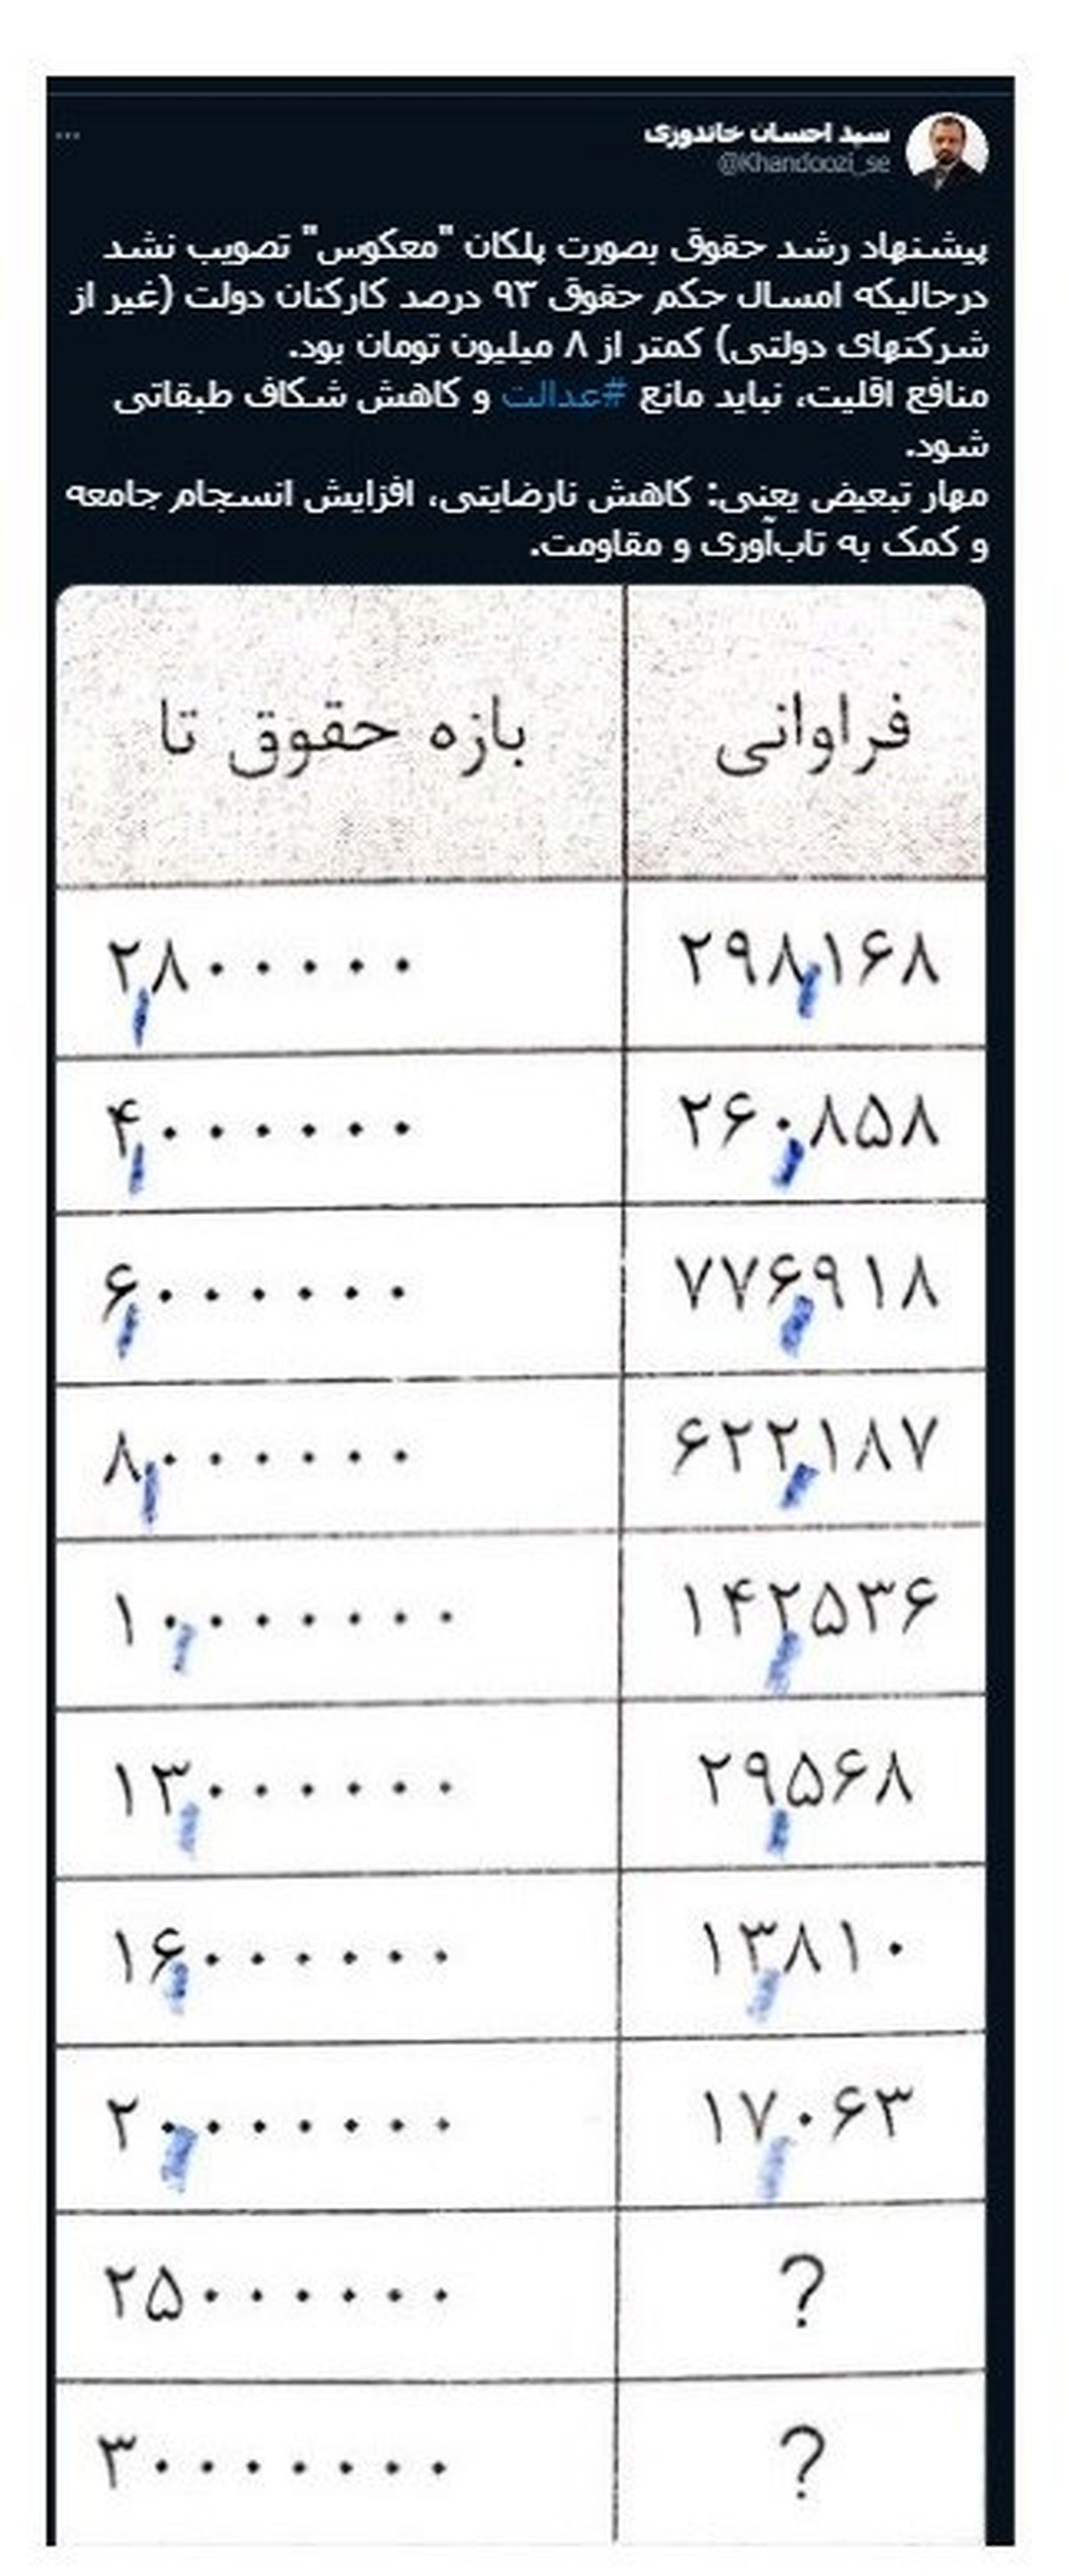 سید احسان خاندوزی
@Khandoozi_se
...
پیشنهاد رشد حقوق بصورت پلکان "معکوس" تصویب نشد
درحالیکه امسال حکم حقوق ۹۳ درصد کارکنان دولت (غیر از
شرکتهای دولتی) کمتر از ۸ میلیون تومان بود.
منافع اقلیت، نباید مانع #عدالت و کاهش شکاف طبقاتی
شود.
مهار تبعیض یعنی: کاهش نارضایتی، افزایش انسجام جامعه
و کمک به تاب‌آوری و مقاومت.
فراوانی بازه حقوق تا
۲۹۸,۱۶۸ ۲,۸۰۰۰۰۰
۲۶۰,۸۵۸ ۴,۰۰۰۰۰۰
۷۷۶,۹۱۸ ۶,۰۰۰۰۰۰
۶۲۲,۱۸۷ ۸,۰۰۰۰۰۰
۱۴۲,۵۳۶ ۱۰,۰۰۰۰۰۰
۲۹,۵۶۸ ۱۳,۰۰۰۰۰۰
۱۳,۸۱۰ ۱۶,۰۰۰۰۰۰
۱۷,۰۶۳ ۲۰,۰۰۰۰۰۰
? ۲۵۰۰۰۰۰۰
? ۳۰۰۰۰۰۰۰